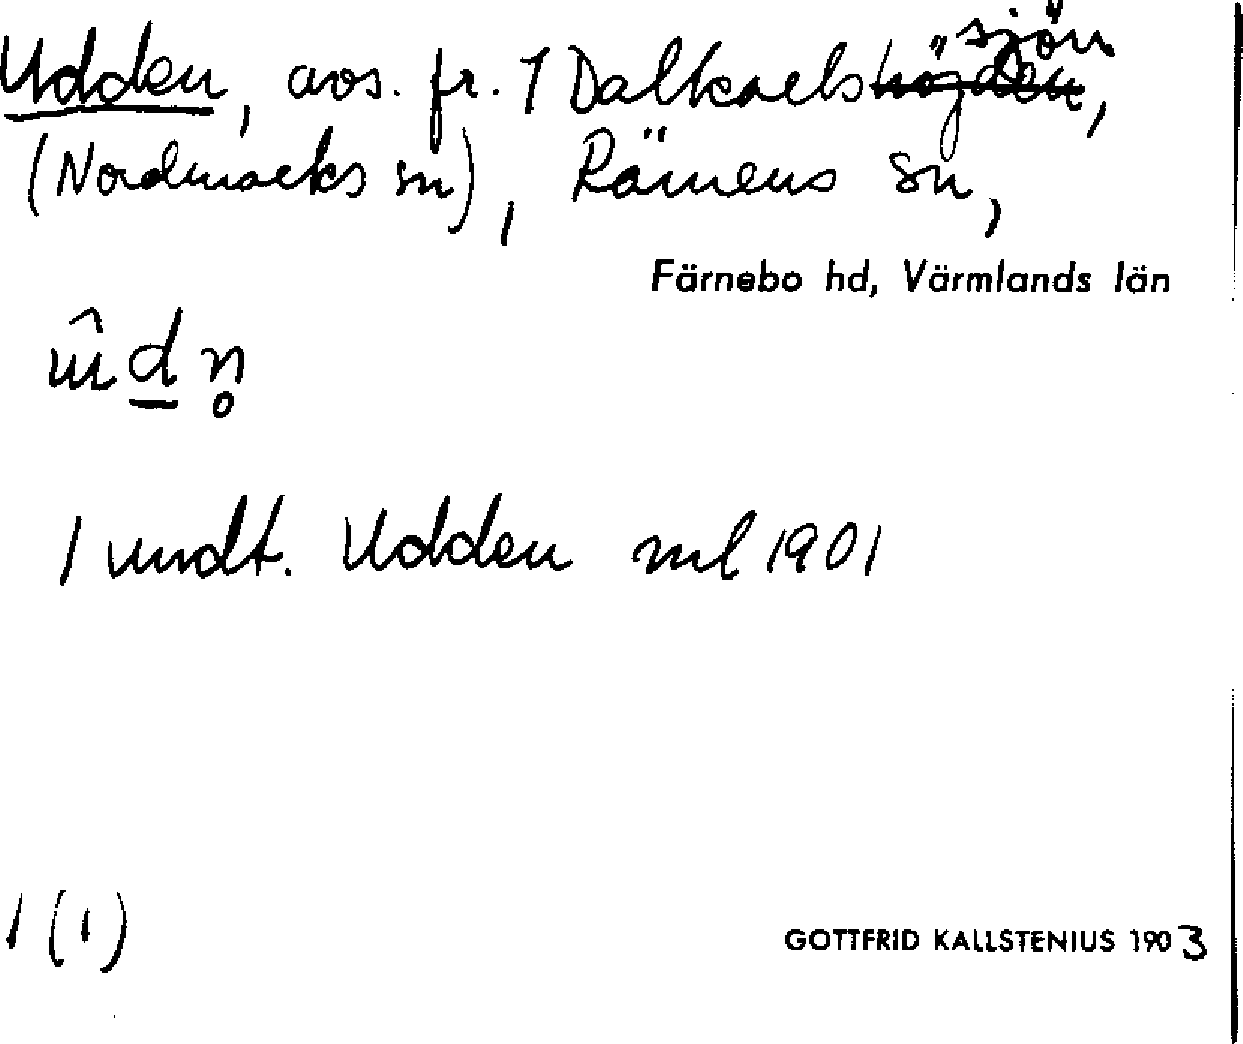 Udden, avs. fr. 1 Dalkarlshöjden, "sjön
(Nordmarks sn), Rämens sn,
Färnebo hd, Värmlands län
1 undt. Udden ml 1901
1 (1)
GOTTFRID KALLSTENIUS 1903